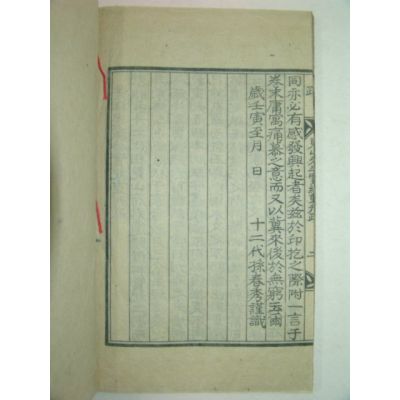 同亦必有感發興起者矣玆於印抱之際附一言于
卷末庸寓痛慕之意而又以冀來後於無窮云爾
歲壬寅至月 日 十二代孫春秀謹識
跋 二